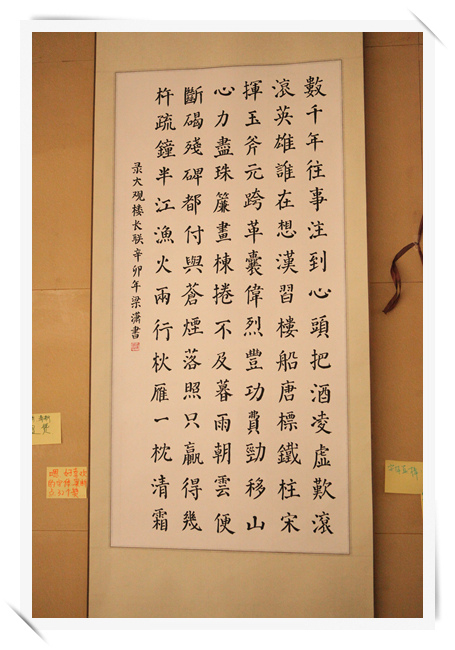 數千年往事注到心頭把酒凌虛歎滾
滾英雄誰在想漢習樓船唐標鐵柱宋
揮玉斧元跨革囊偉烈豐功費勁移山
心力盡珠簾畫棟捲不及暮雨朝雲便
斷碣殘碑都付與蒼煙落照只贏得幾
杵疏鐘半江漁火兩行秋雁一枕清霜
录大观楼长联辛卯年梁潇書